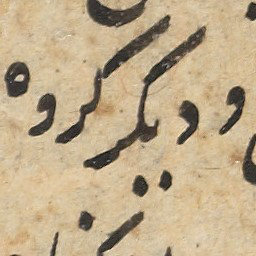 و دیگر کروه